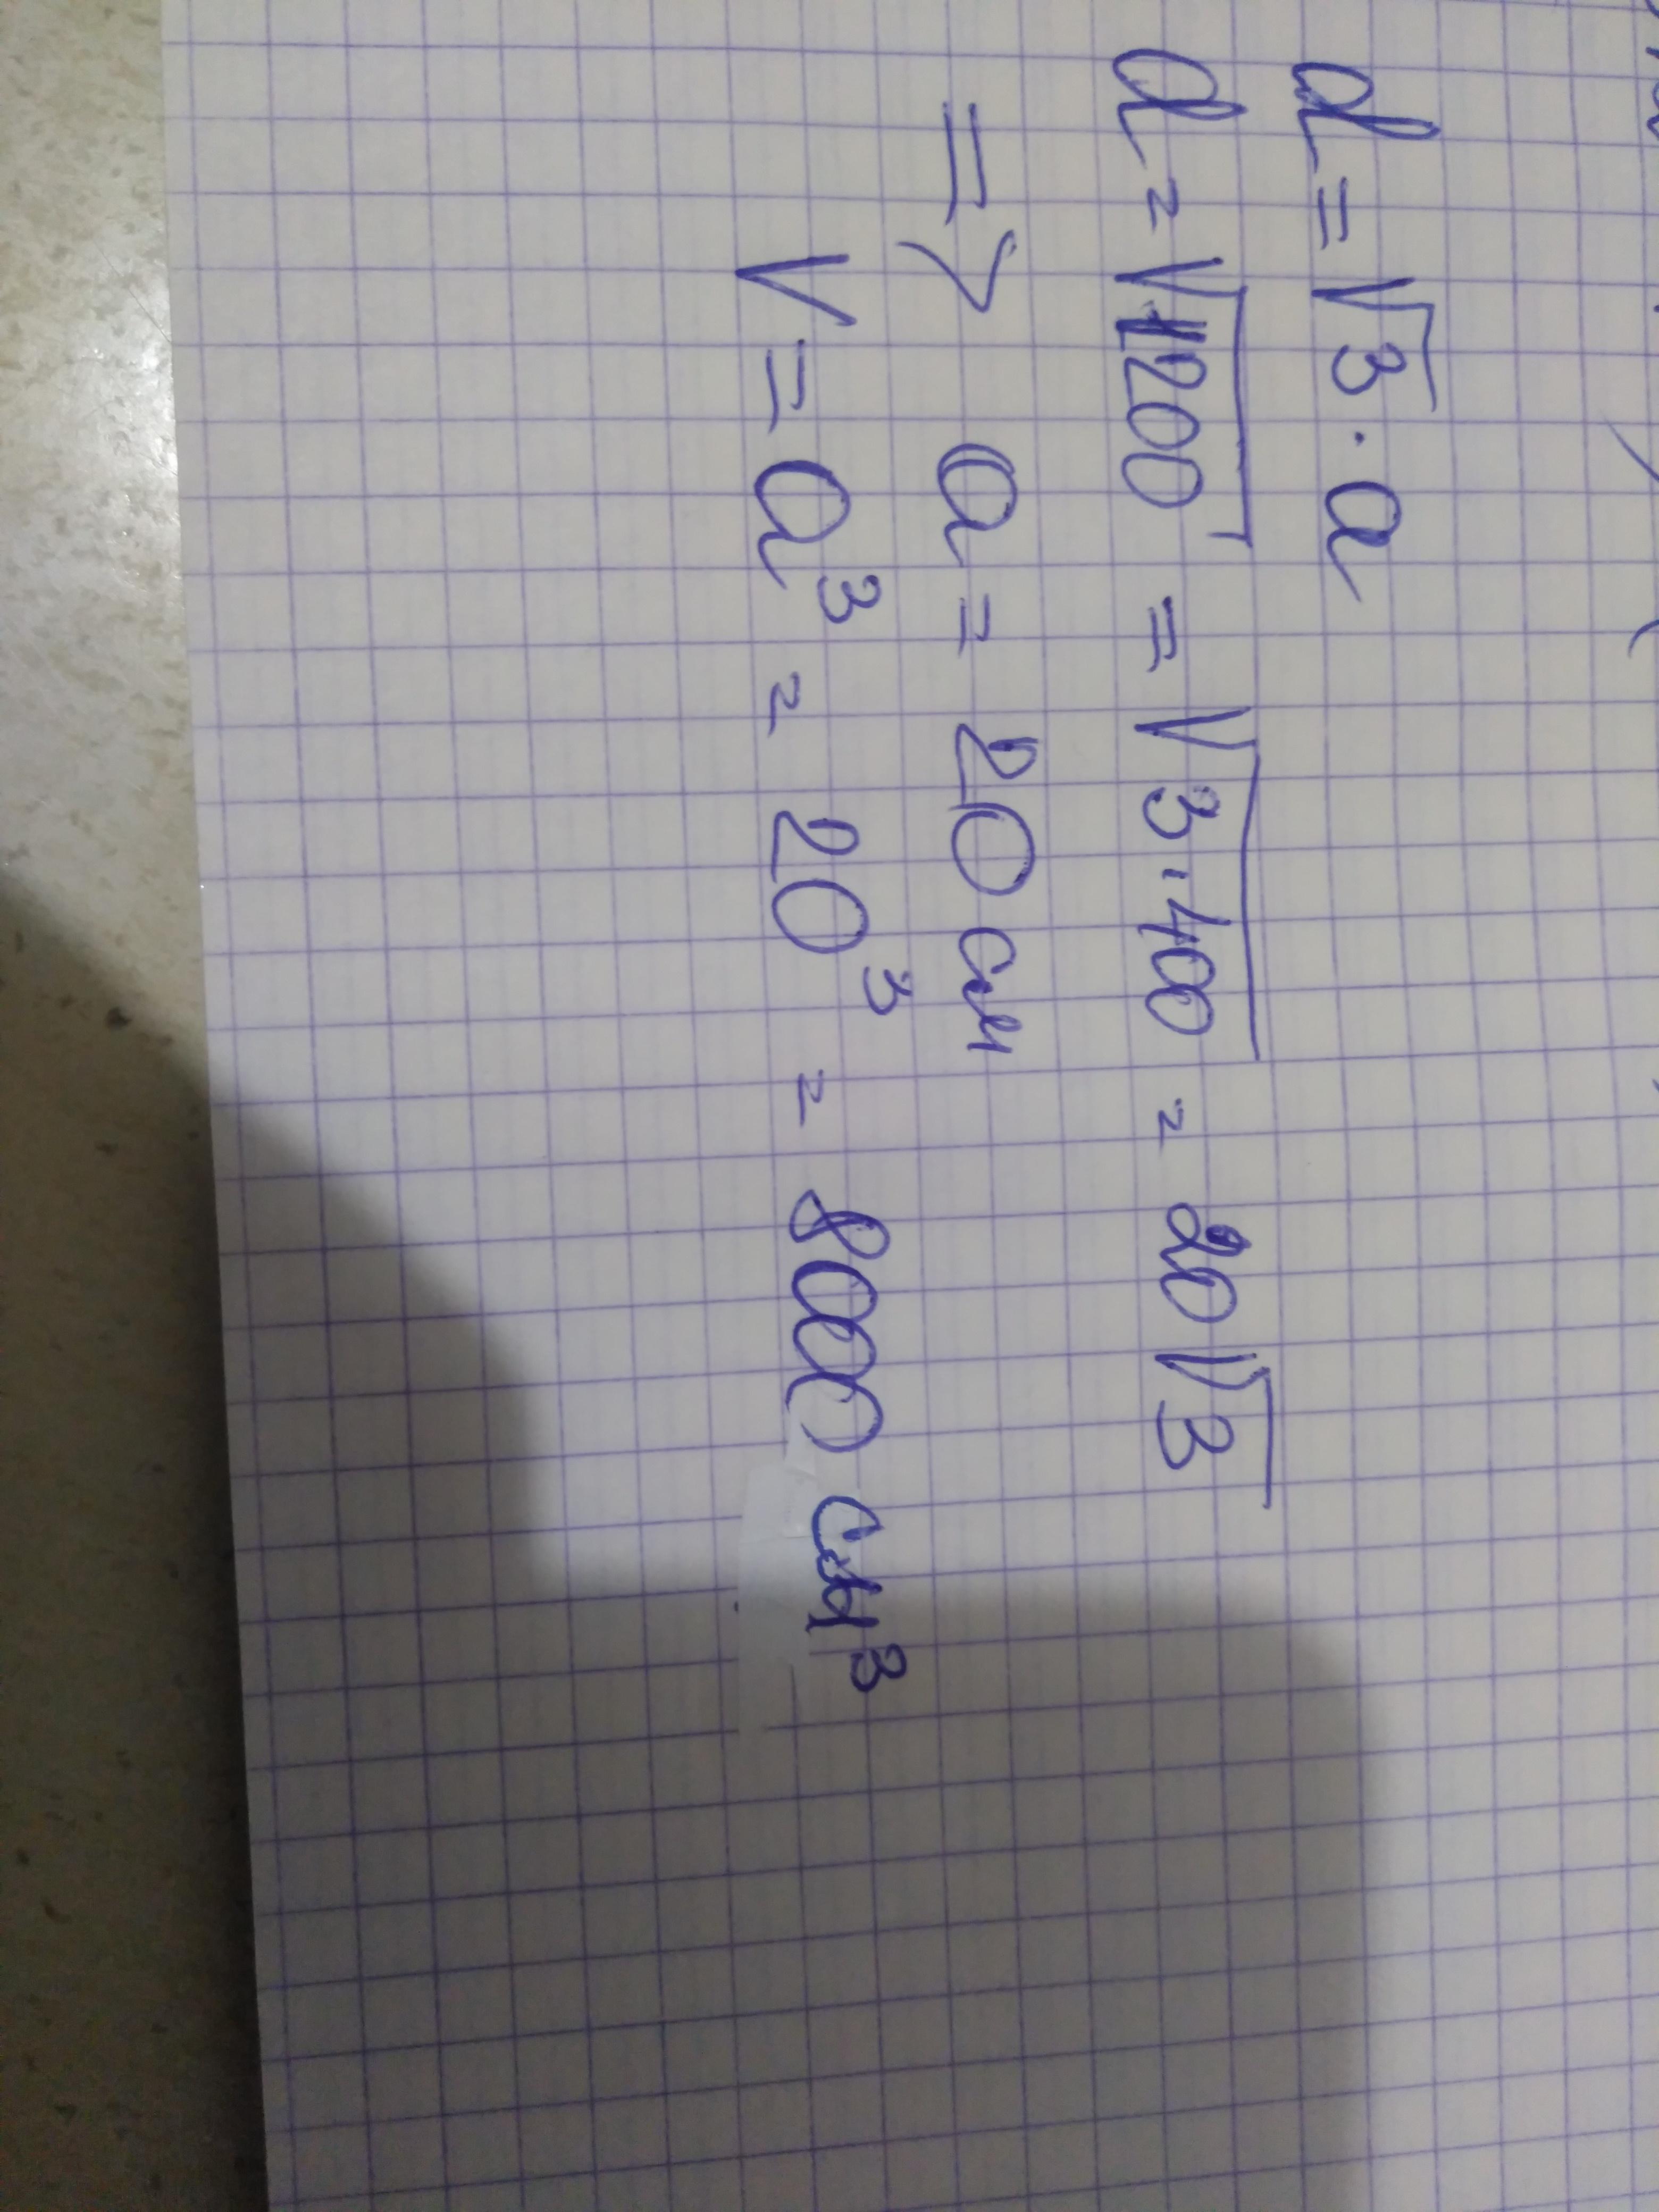 d = √3 · a
d = √1200 = √3·400 = 20√3
=> a = 20 см
V = a³ = 20³ = 8000 см³